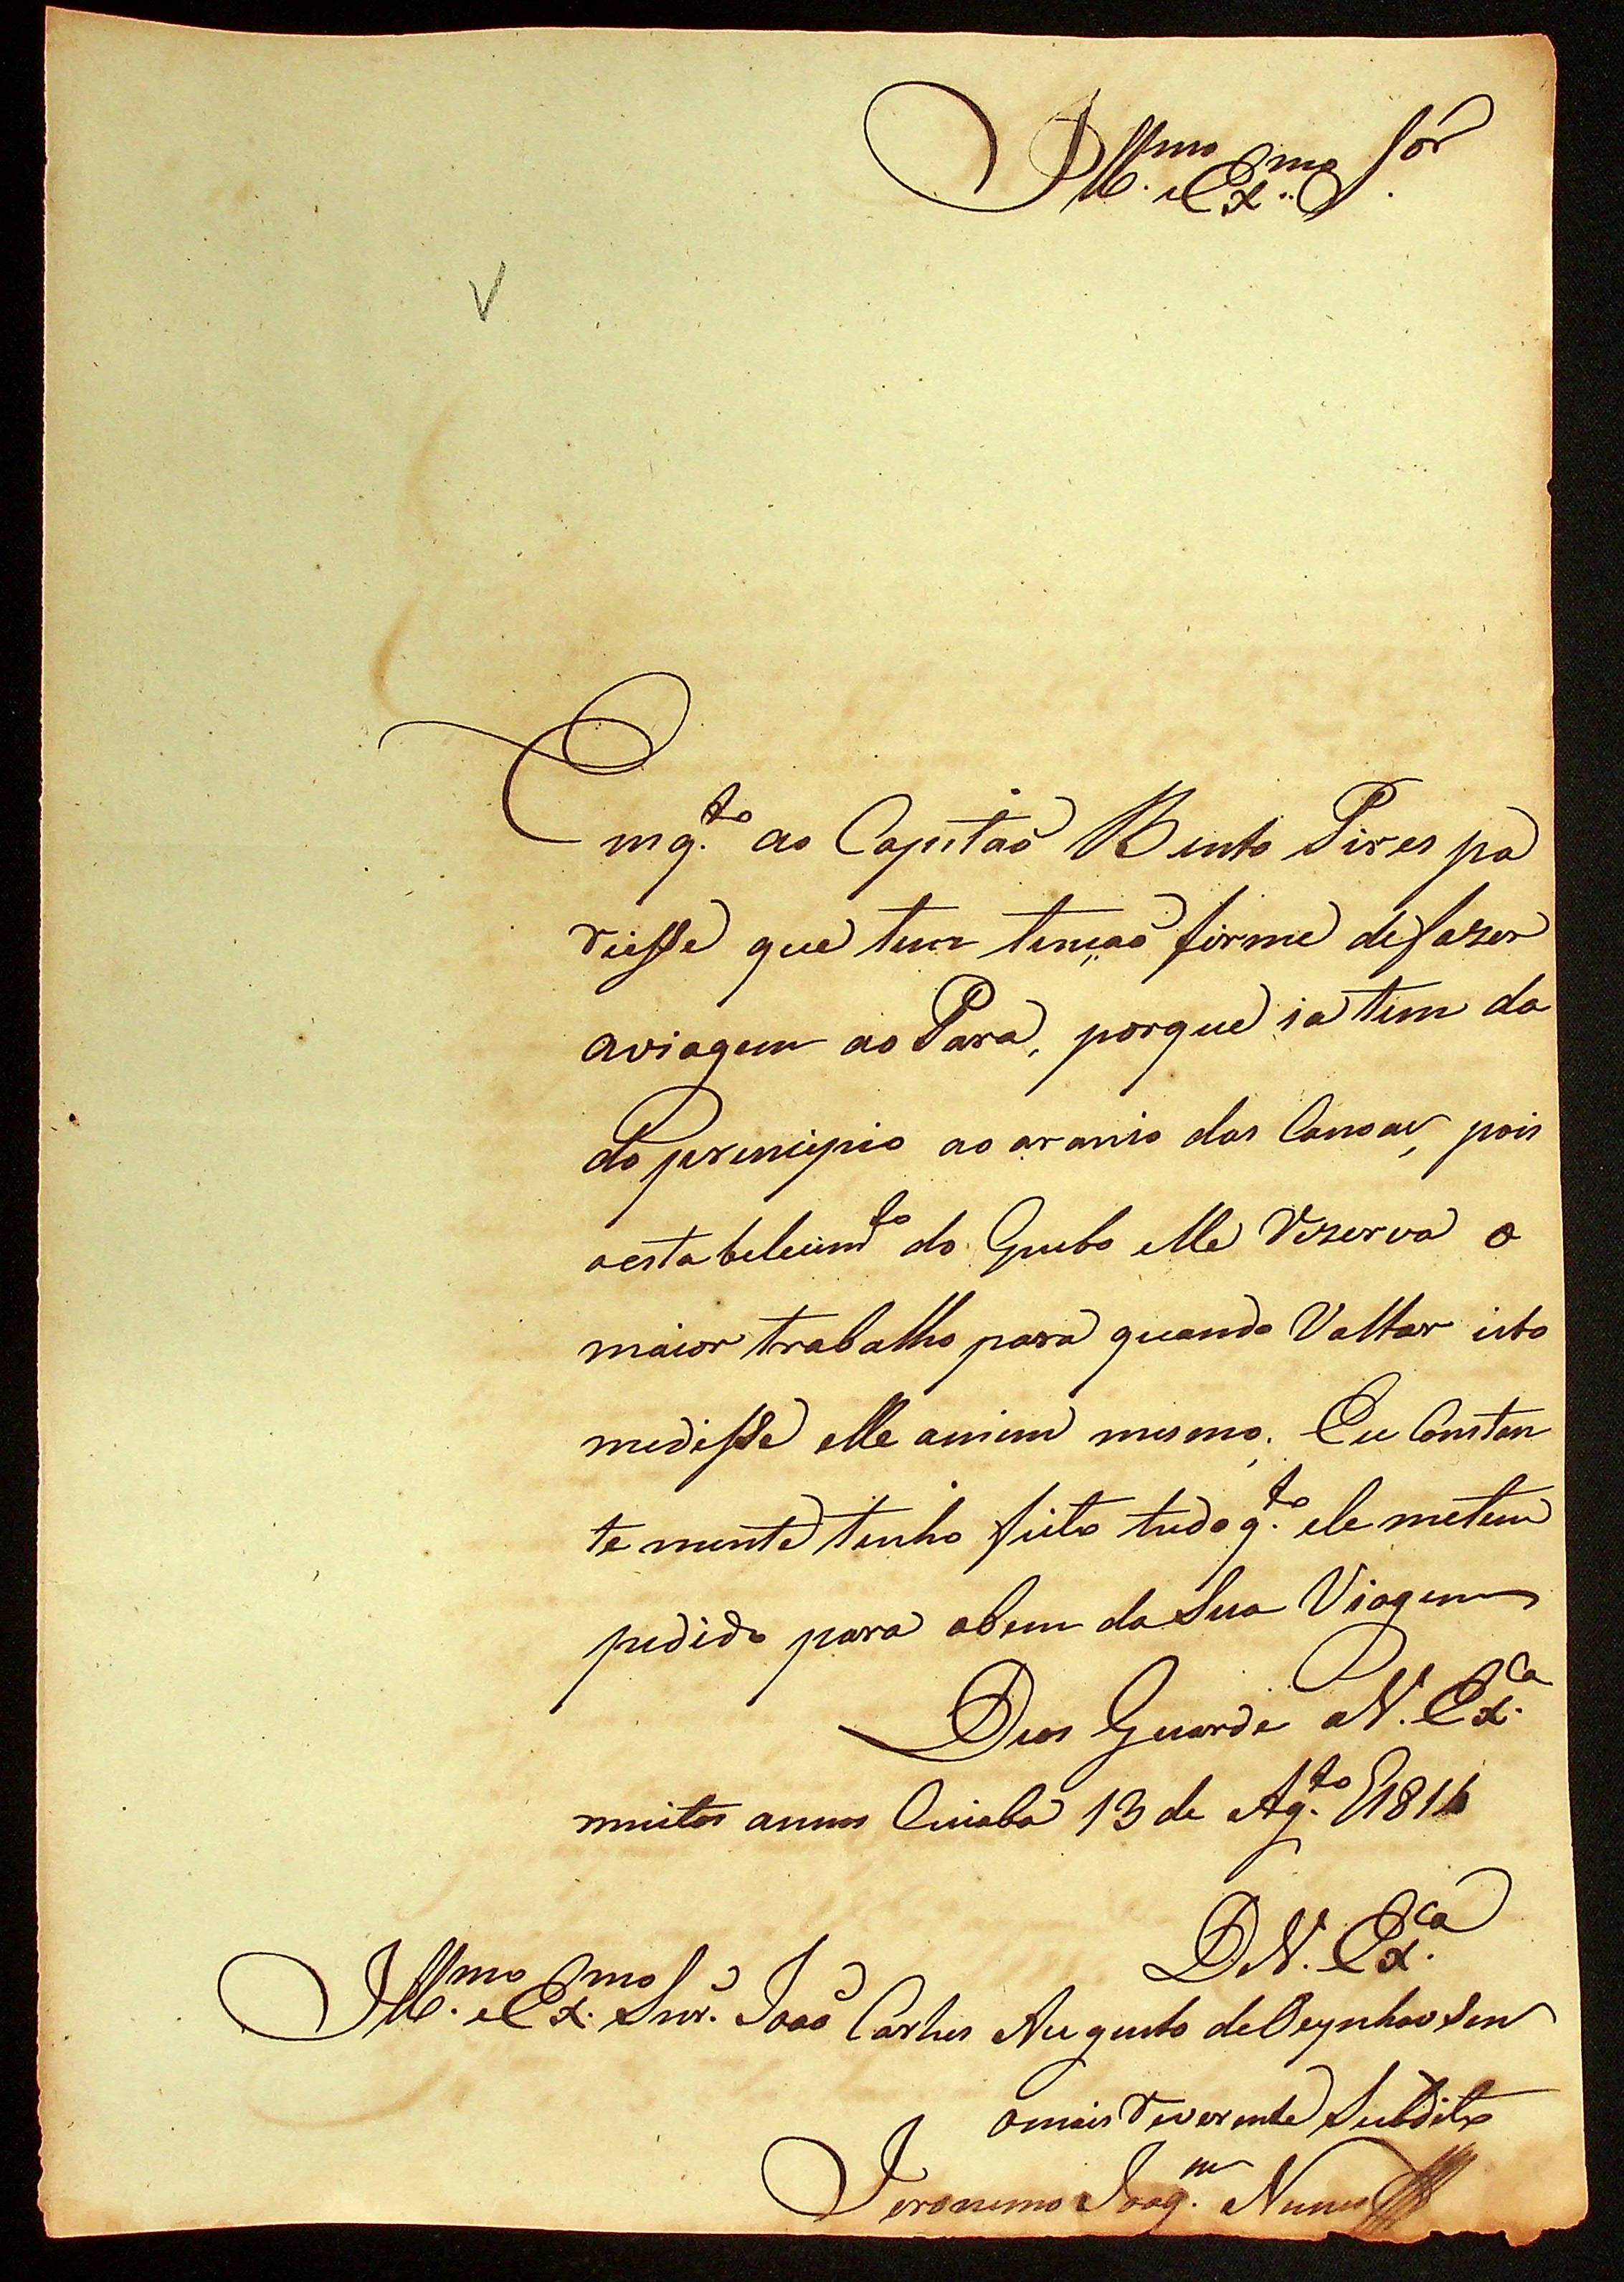 Ill.mo e Ex.mo Sor.
Emq.to ao Capitaõ Bento Pires pa
resse que tem tençaõ firme defaser
aviagem ao Para, porque ia tem da
do prencipio ao aranio das Canoas, pois
aestabelecim.to do Guebo elle reserva o
maior trabalho para quando Voltar isto
medisse elle amim mesmo. Eu Constan
te mente tenho feito tudo q.to ele metem
pedido para obem da Sua Viagem
Deos Guarde a V. Ex.ca
muitos annos Cuiaba 13 de Ag.to 1816
D V. Ex.ca
Ill.mo e Ex.mo Snr. Joaõ Carlos Augusto deOeynhausen
omais reverente Subdito
Jeronimo Joaq.m Nunes